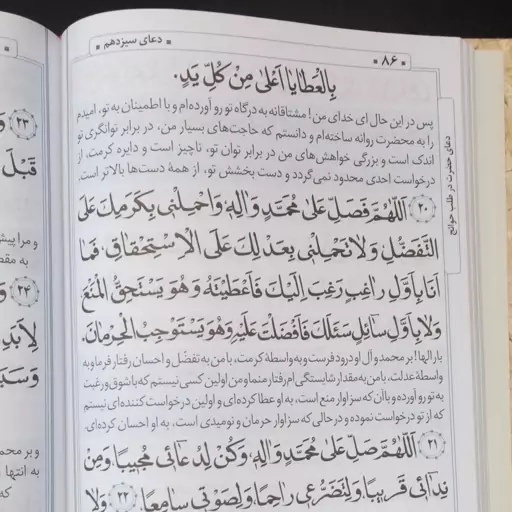 ۸۶
دعای سیزدهم
بِالْعَطَايَا أَعْلَىٰ مِنْ كُلِّ يَدٍ.
پس در این حال ای خدای من! مشتاقانه به درگاه تو رو آورده‌ام و با اطمینان به تو، امیدم
را به محضرت روانه ساخته‌ام و دانستم که حاجت‌های بسیار من، در برابر توانگری تو
اندک است و بزرگی خواهش‌های من در برابر توان تو، ناچیز است و دایره کرمت، از
درخواست احدی محدود نمی‌گردد و دست بخشش تو، از همهٔ دست‌ها بالاتر است.
﴿۲۰﴾ اَللّٰهُمَّ فَصَلِّ عَلىٰ مُحَمَّدٍ وَ الِهِ، وَاحْمِلْنى بِكَرَمِكَ عَلَى
التَّفَضُّلِ وَلَا تَحْمِلْنى بِعَدْلِكَ عَلَى الْاِسْتِحْقاقِ، فَمٰا
اَنَا بِاَوَّلِ راغِبٍ رَغِبَ اِلَيْكَ فَاَعْطَيْتَهُ وَ هُوَ يَسْتَحِقُّ الْمَنْعَ
وَلَا بِاَوَّلِ سائِلٍ سَئَلَكَ فَاَفْضَلْتَ عَلَيْهِ وَهُوَ يَسْتَوْجِبُ الْحِرْمانَ.
بارالها! بر محمد و آل او درود فرست و به واسطهٔ کرمت، با من به تفضّل و احسان رفتار فرما و به
واسطهٔ عدلت، با من به مقدار شایستگی‌ام رفتار منما و من اولین کسی نیستم که با شوق و رغبت
به تو رو آورده و با آن که سزاوار منع است، به او عطا کرده‌ای و اولین درخواست کننده‌ای نیستم
که از تو درخواست نموده و در حالی که سزاوار حرمان و نومیدی است، به او احسان کرده‌ای.
﴿۲۱﴾ اَللّٰهُمَّ صَلِّ عَلىٰ مُحَمَّدٍ وَ الِهِ، وَكُنْ لِدُعائى مُجيبًا وَمِنْ
نِدائى قَريبًا وَلِتَضَرُّعى راحِمًا وَلِصَوْتى سامِعًا. ﴿۲۲﴾ وَلَا
دعای حضرت در طلب حوائج
﴿۲۳﴾
قَبْلَ
و مرا پیش
به مقص
﴿۲۴﴾ وَ
لِاَبَدِ
وَ سَبَ
و بر محم
به انتها
که